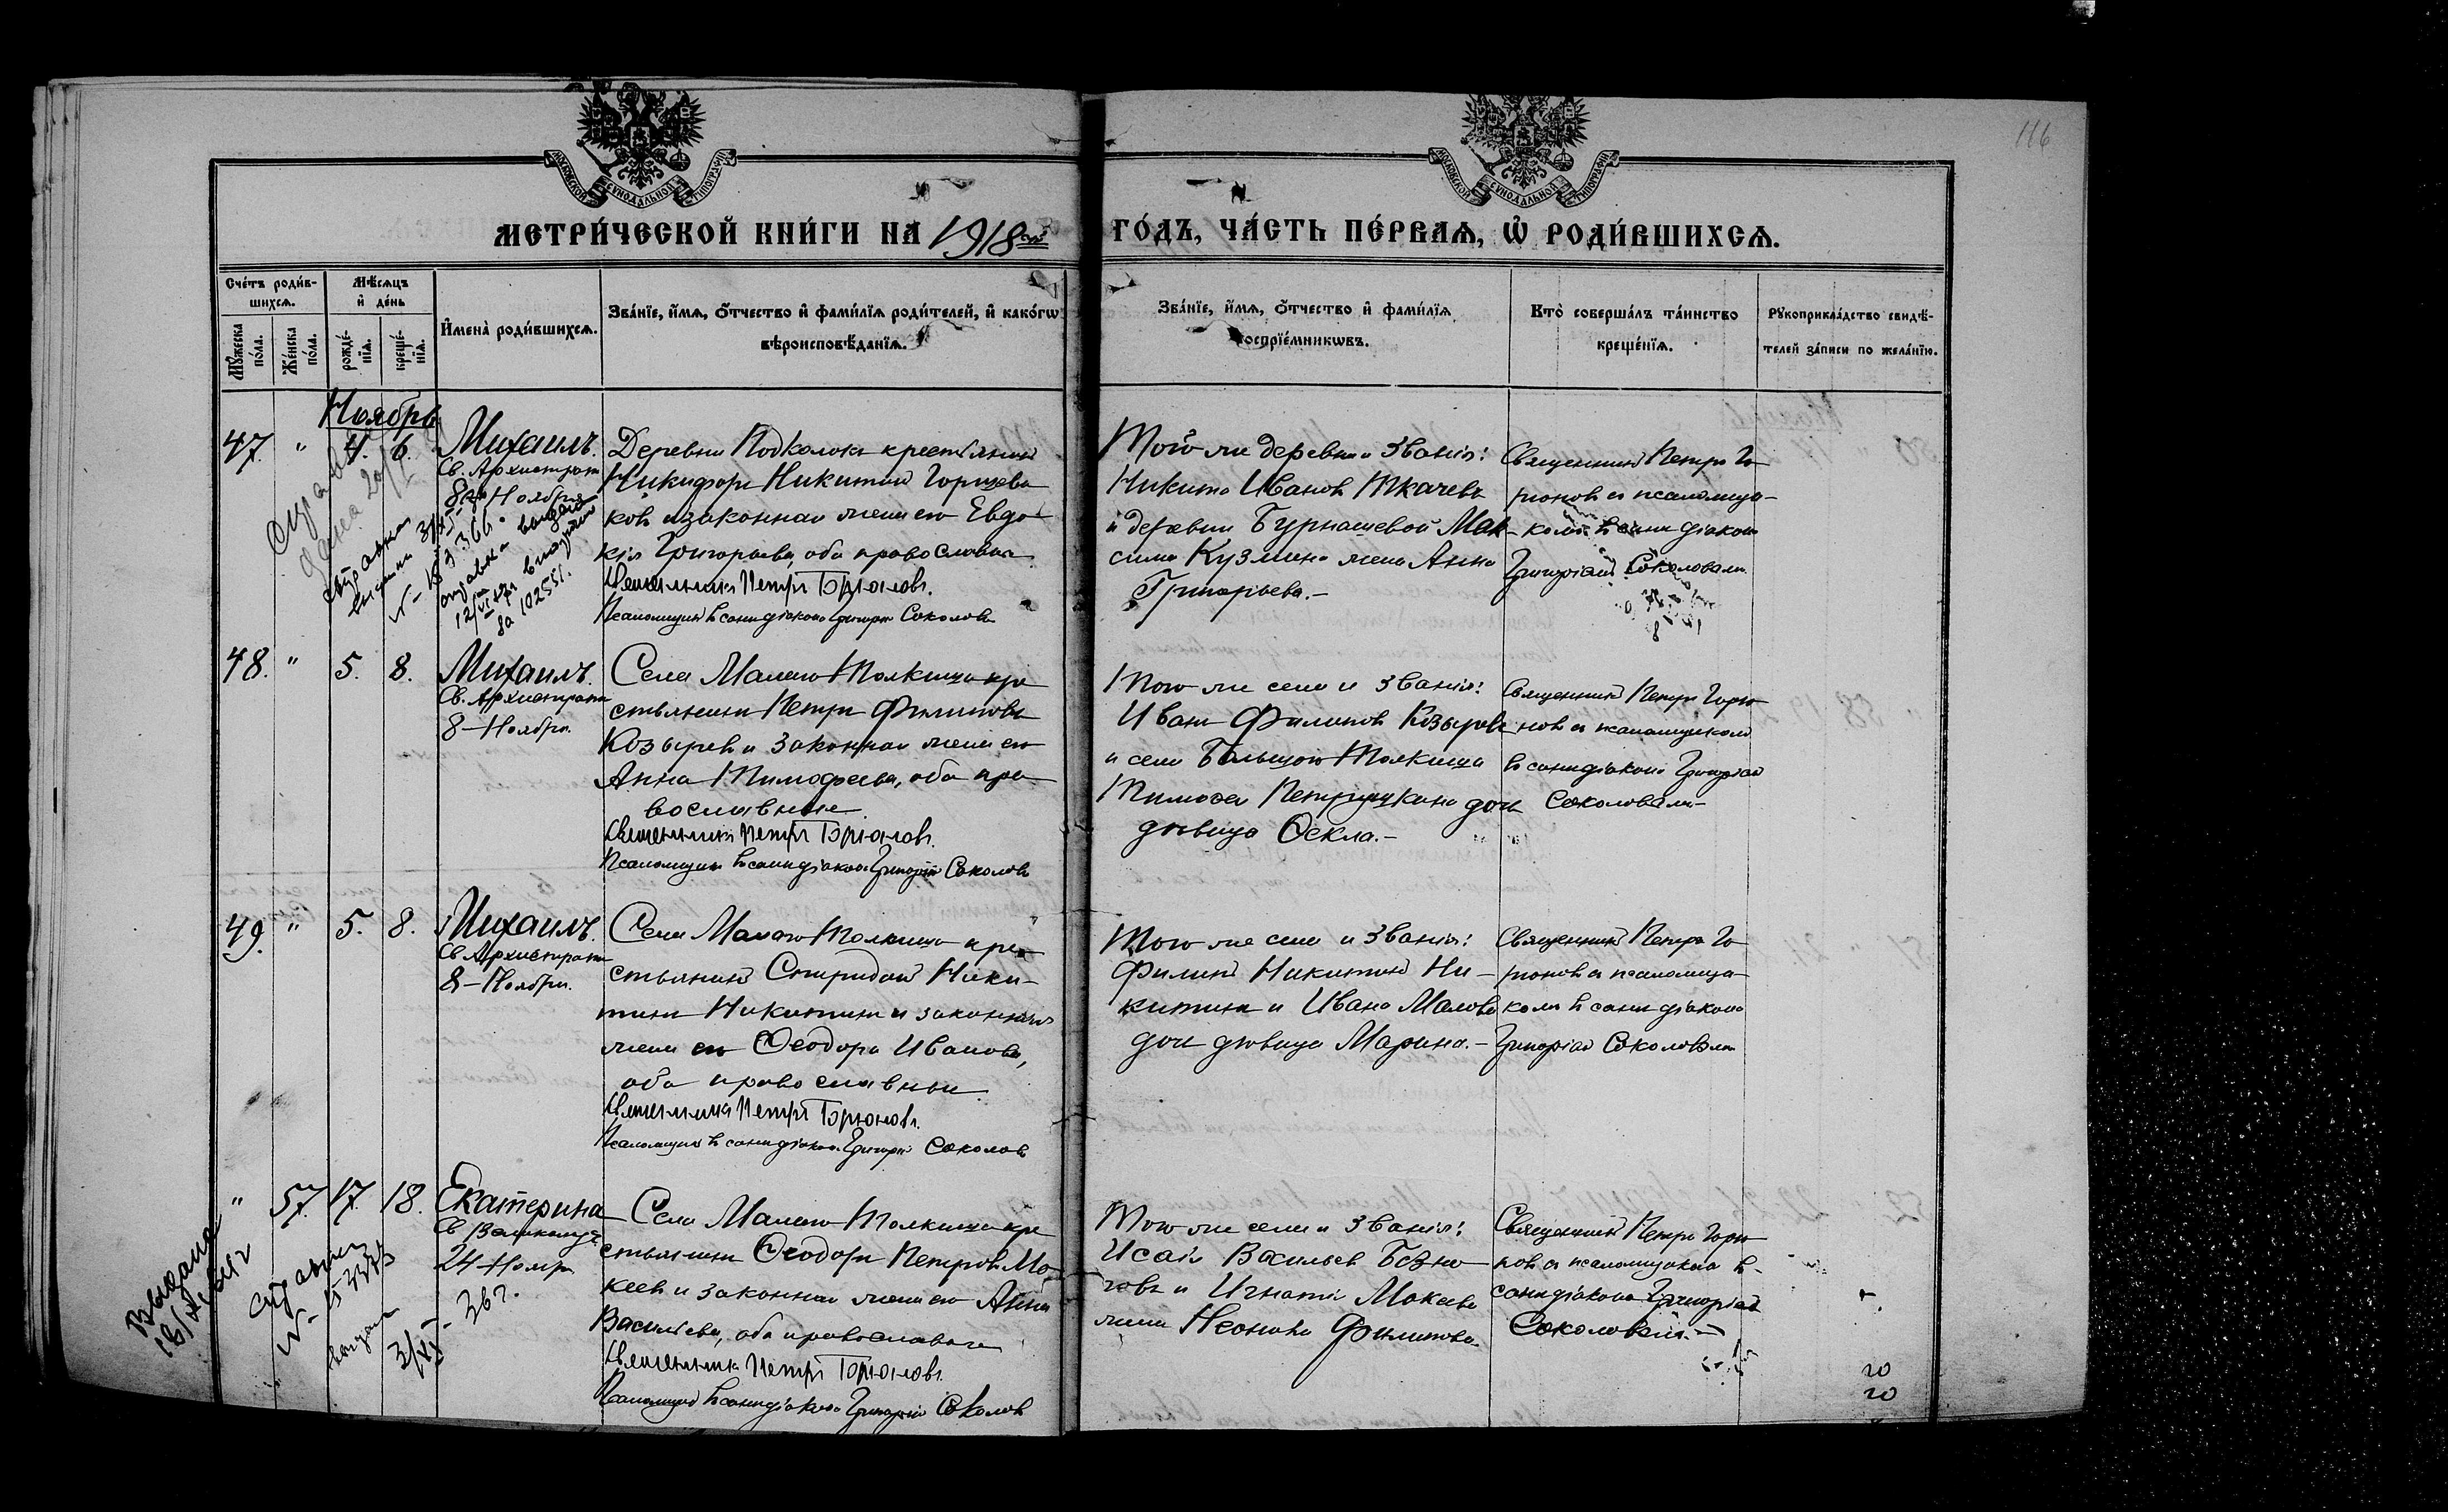 116
МОСКОВСКОЙ СѴНОДАЛЬНОЙ ТИПОГРАФІИ
МОСКОВСКОЙ СѴНОДАЛЬНОЙ ТИПОГРАФІИ
МЕТРИ́ЧЕСКОЙ КНИ́ГИ НА 1918 ГО́ДЪ, ЧА́СТЬ ПЕ́РВАѦ, Ѡ҆ РОДИ́ВШИХСѦ.
Сче́тъ роди́в-
шихсѧ.
Мѣ́сѧцъ
и҆ де́нь
Мꙋ́жеска
по́ла.
Же́нска
по́ла.
рожде́-
нїѧ.
креще́-
нїѧ.
И҆мена̀ роди́вшихсѧ.
Зва́нїе, и҆́мѧ, ѻ҆́тчество и҆ фами́лїѧ роди́телей, и҆ како́гѡ
вѣроисповѣ́данїѧ.
Зва́нїе, и҆́мѧ, ѻ҆́тчество и҆ фами́лїѧ
воспрїе́мникѡвъ.
Кто̀ соверша́лъ та́инство
креще́нїѧ.
Рꙋкоприкла́дство свидѣ́-
телей за́писи по жела́нїю.
Ноябрь
47. " 4. 6. Михаилъ.
Св. Архистрат
8го Ноября
Деревни Подколокъ крестьянинъ
Никифоръ Никитинъ
ковъ и законная жена его Евдо-
кія Григорьева, оба православные
Священникъ Петръ Горюновъ.
Псаломщикъ въ санѣ діакона Григорій Соколовъ
Той же деревни и званія:
Никита Ивановъ Ткачевъ
и деревни Бурнашевой Мак-
сима Кузмина жена Анна
Григорьева.-
Священникъ Петръ Го
рюновъ съ псаломщи-
комъ въ санѣ діакона
Григоріемъ Соколовымъ
Справка
выдана
48. " 5. 8. Михаилъ.
Св. Архистрати
8-Ноября.
Села Малаго Толкиша кре
стьянинъ Петръ Филиповъ
Козыревъ и законная жена его
Анна Тимофеева, оба пра-
вославные
Священникъ Петръ Горюновъ.
Псаломщикъ въ санѣ діакона Григорій Соколовъ
Того же села и званія:
Иванъ Филиповъ Козыревъ
и села Большого Толкиша
дочь
дѣвица Ѳекла.-
Священникъ Петръ Горю
новъ съ псаломщикомъ
въ санѣ діакона Григоріем
Соколовымъ-
49. " 5. 8. Михаилъ.
Св Архистрати
8-Ноября.
Села Малаго Толкиша кре-
стьянинъ Спиридонъ Ники-
тинъ Никитинъ и законная
жена его Ѳеодора Иванова,
оба православные
Священникъ Петръ Горюновъ.
Псаломщикъ въ санѣ діакона Григорій Соколовъ
Того же села и званія:
Филипъ Никитинъ Ни-
китинъ и Ивана Малова
дочь дѣвица Марина.-
Священникъ Петръ Го
рюновъ съ псаломщи-
комъ въ санѣ діакона
Григоріемъ Соколовым
" 57. 17. 18. Екатерина
Св Великомуч.
24-Ноября
Села Малаго Толкиша кре
стьянинъ Ѳеодоръ Петровъ Мо
кеевъ и законная жена его Анна
Васильева, оба православные
Священникъ Петръ Горюновъ.
Псаломщикъ въ санѣ діакона Григорій Соколовъ
Того же села и званія:
Исаія Васильевъ
и Игнатія Мокеева
жена Филипова
Священникъ Петръ Горю
новъ съ псаломщикомъ в-
санѣ діакона Григоріем
Соколовымъ.-
Выдана
справка
выдана
20
20